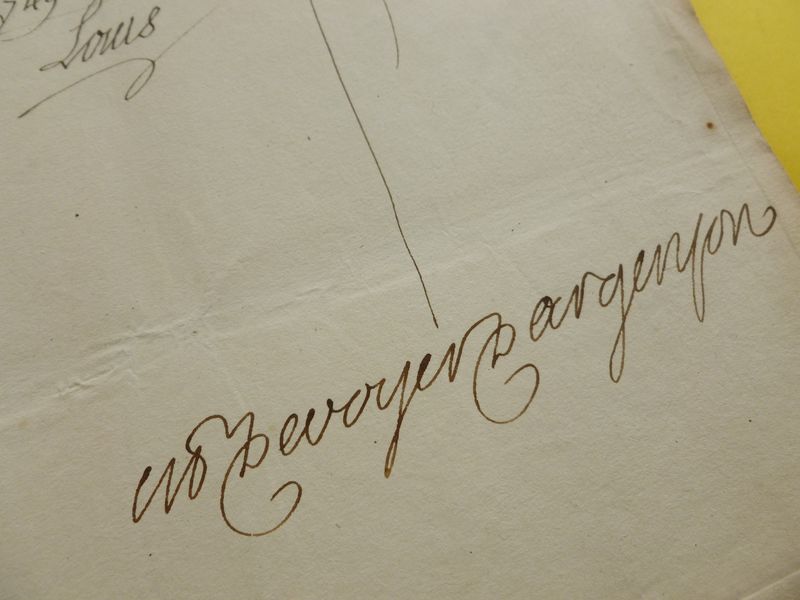 749
Louis
M De voyer D argenson